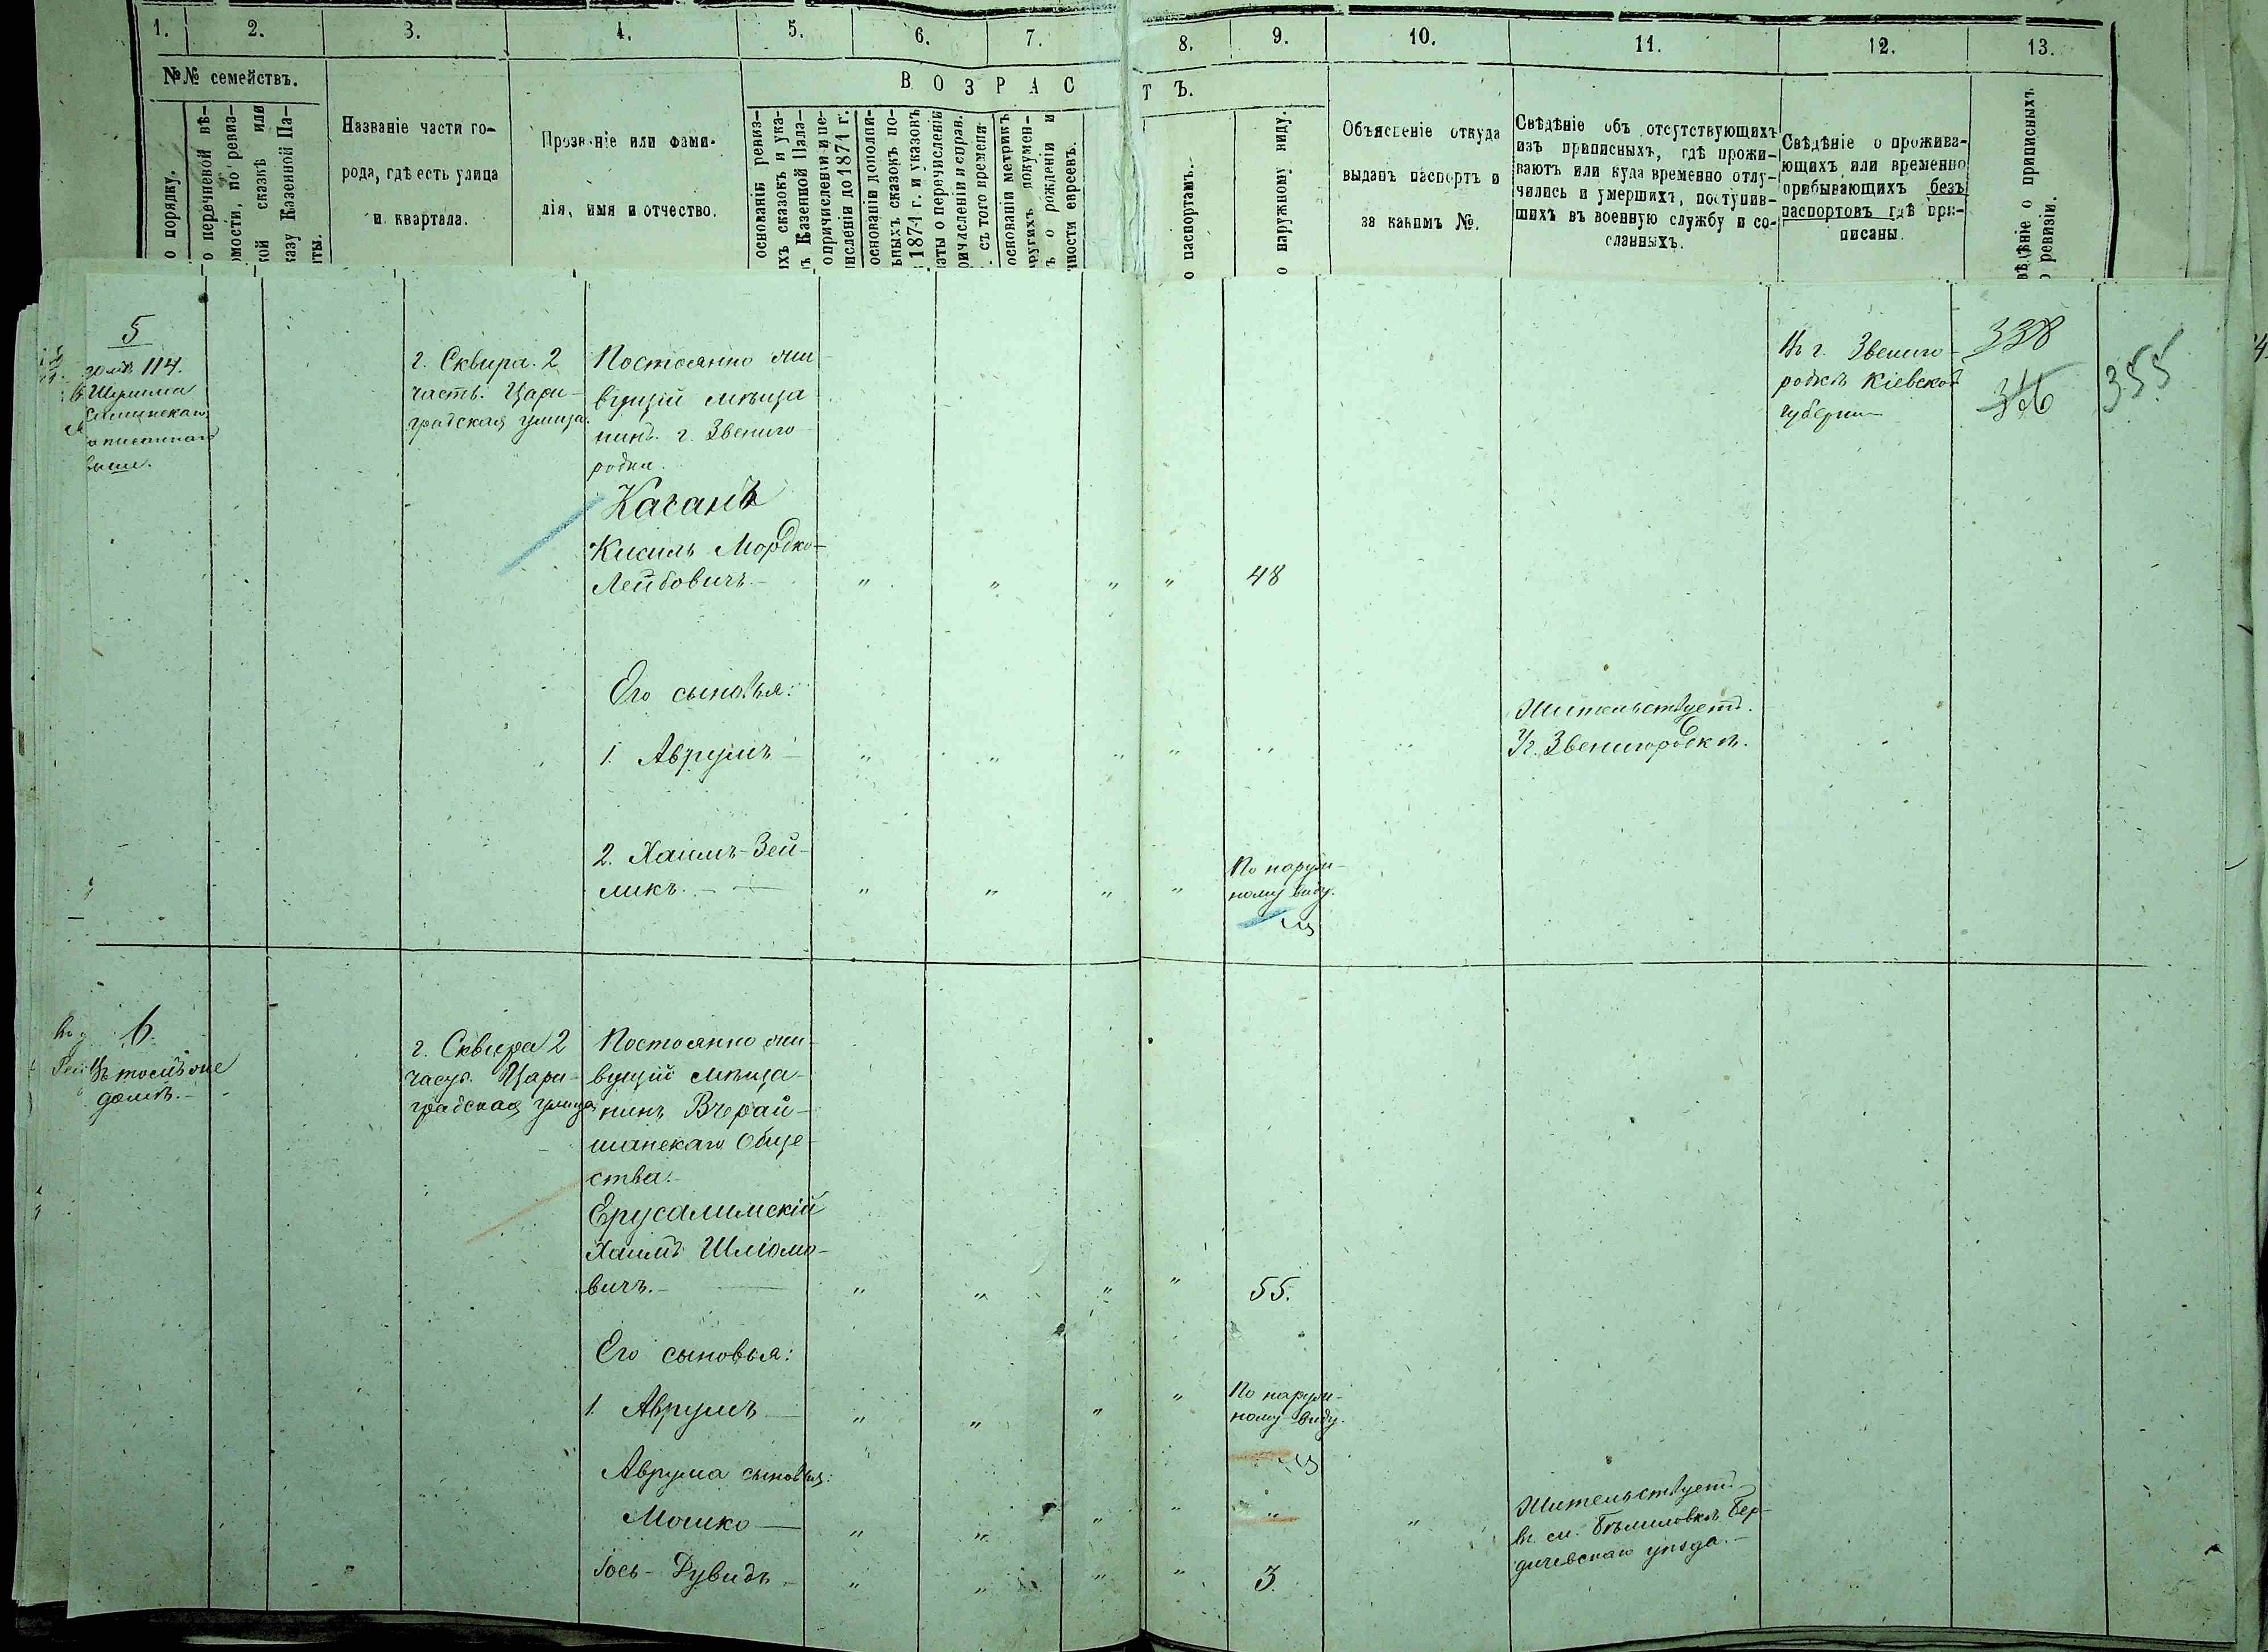 1. 2. 3. 4. 5. 6. 7. 8. 9. 10. 11. 12. 13.
№№ семействъ.
о порядку.
о перечневой вѣ-
омости, по ревиз-
кой сказкѣ или
казу Казенной Па-
ты.
Названіе части го-
рода, гдѣ есть улица
и квартала.
Прозваніе или фами-
лія, имя и отчество.
ВОЗРАСТЪ.
основаніи ревиз-
ихъ сказокъ и ука-
ъ Казенной Пала-
опричисленіи и пе-
исленіи до 1874 г.
основаніи дополни-
ьныхъ сказокъ по-
1874 г. и указовъ
латы о перечисленіи
причисленіи и справ.
съ того времени
основаніи метрикъ
другихъ докумен-
ъ о рожденіи и
чности евреевъ.
о паспортамъ.
о наружному виду.
Объясненіе откуда
выданъ паспортъ и
за какимъ №.
Свѣдѣніе объ отсутствующихъ
изъ приписныхъ, гдѣ прожи-
ваютъ или куда временно отлу-
чились и умершихъ, поступив-
шихъ въ военную службу и со-
сланныхъ.
Свѣдѣніе о прожива-
ющихъ или временно
прибывающихъ безъ
паспортовъ гдѣ при-
писаны.
вѣдѣніе о приписныхъ
о ревизіи.
5
114.
выше.
г. Сквира. 2
часть. Цари-
градская улица.
Постоянно жи-
вущій мѣща-
нинъ г. Звениго-
родки.
Каганъ
Кисиль Мордко-
Лейбовичъ.
48
Въ г. Звениго-
родкѣ Кіевской
губерніи
338
355
Его сыновья:
1. Аврумъ
Жительствуетъ
г. Звенигородкѣ.
2. Хаимъ-Зей-
ликъ.
По наруж-
ному виду.
6.
Въ томъ же
домѣ.
г. Сквира 2
часть. Цари-
градская улица
Постоянно жи-
вущій мѣща-
нинъ Вчерай-
шанскаго Обще-
ства.
Ерусалимскій
Хаимъ Шліомо-
вичъ.
55.
Его сыновья:
1. Аврумъ
По наруж-
ному виду.
Аврума сыновья:
Мошко
Жительствуетъ
въ с. Бѣлиловкѣ Бер-
дичевскаго уѣзда.
Іось-Дувидъ
3.